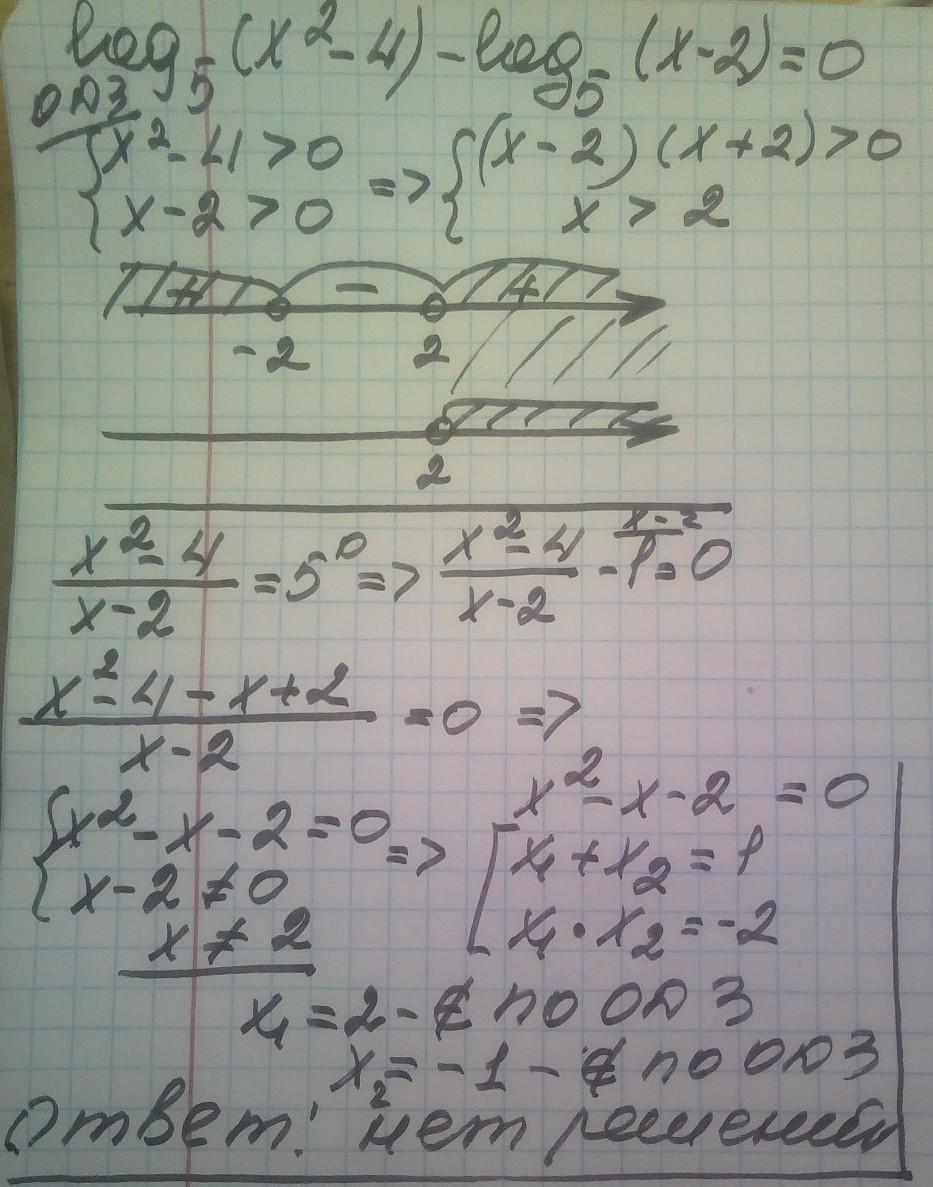 log₅(x²-4)-log₅(x-2)=0
ОДЗ
{x²-4>0 => {(x-2)(x+2)>0
{x-2>0 x>2
+ - +
-2 2
2
(x²-4)/(x-2) =5⁰ => (x²-4)/(x-2) -1=0 x-2
(x²-4-x+2)/(x-2) =0 =>
x²-x-2=0
{x²-x-2=0 => [x₁+x₂=1
{x-2≠0 [x₁·x₂=-2
x≠2
x₁=2-∉ по ОДЗ
x₂=-1-∉ по ОДЗ
Ответ: нет решений